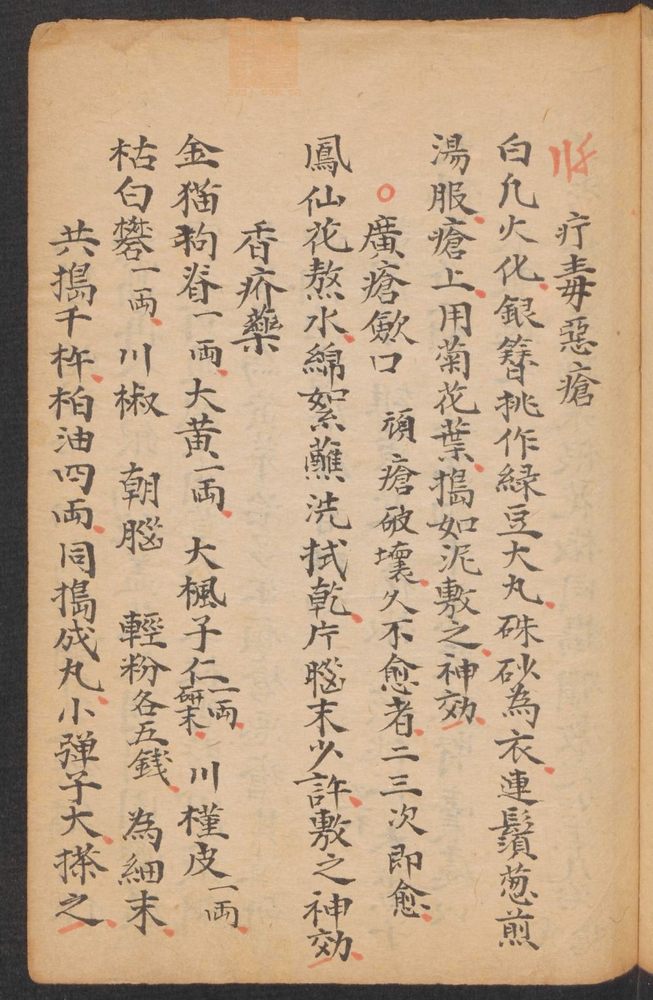 疔毒惡瘡
白凡火化銀簪挑作緑豆大丸硃砂為衣連鬚葱煎
湯服瘡上用菊花葉搗如泥敷之神効
廣瘡歛口 頑瘡破壞久不愈者二三次即愈
鳳仙花熬水綿絮蘸洗拭乾片腦末少許敷之神効
香疥藥
金猫狗脊一両大黄一両 大楓子仁一両研末 川槿皮一両
枯白礬一両川椒 朝腦 輕粉各五錢 為細末
共搗千杵柏油四両同搗成丸小弹子大搽之